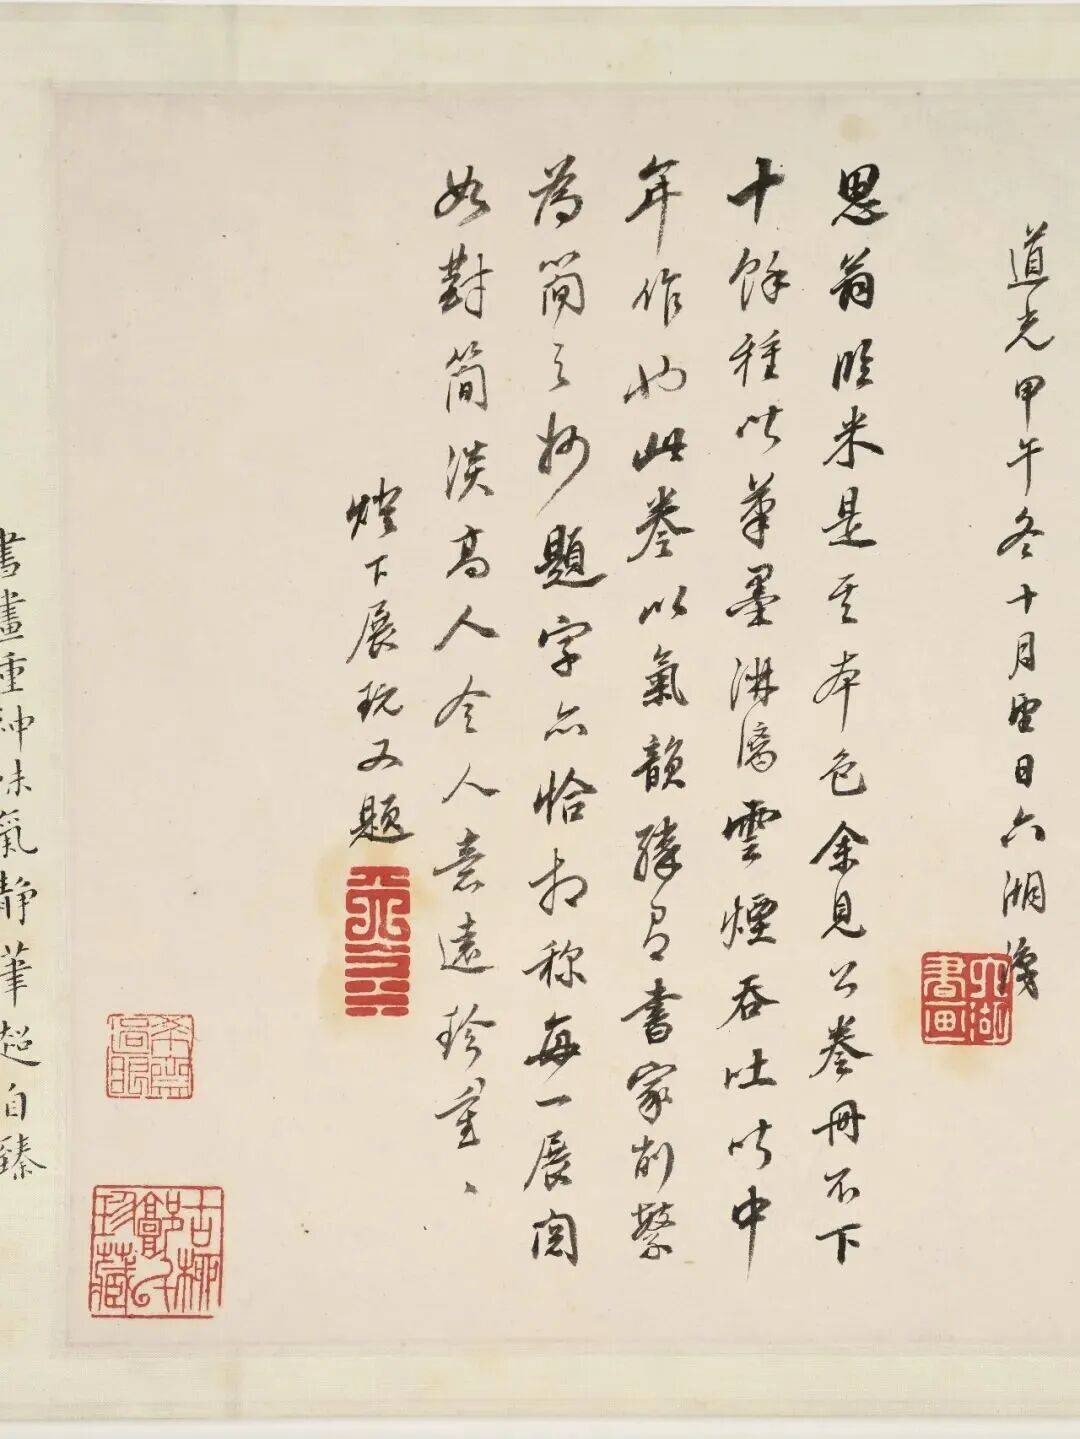 道光甲午冬十月望日六湖識
六湖書画
思翁臨米是其本色余見公卷冊不下
十餘種皆筆墨淋漓雲煙吞吐皆中
年作也此卷以氣韻勝是書家削繁
為簡之妙題字亦恰相稱每一展閱
如對簡淡高人令人意遠珍重、
燈下展玩又題
希齋過眼
古柳郭氏珍藏
書畫重神味氣靜筆超自臻